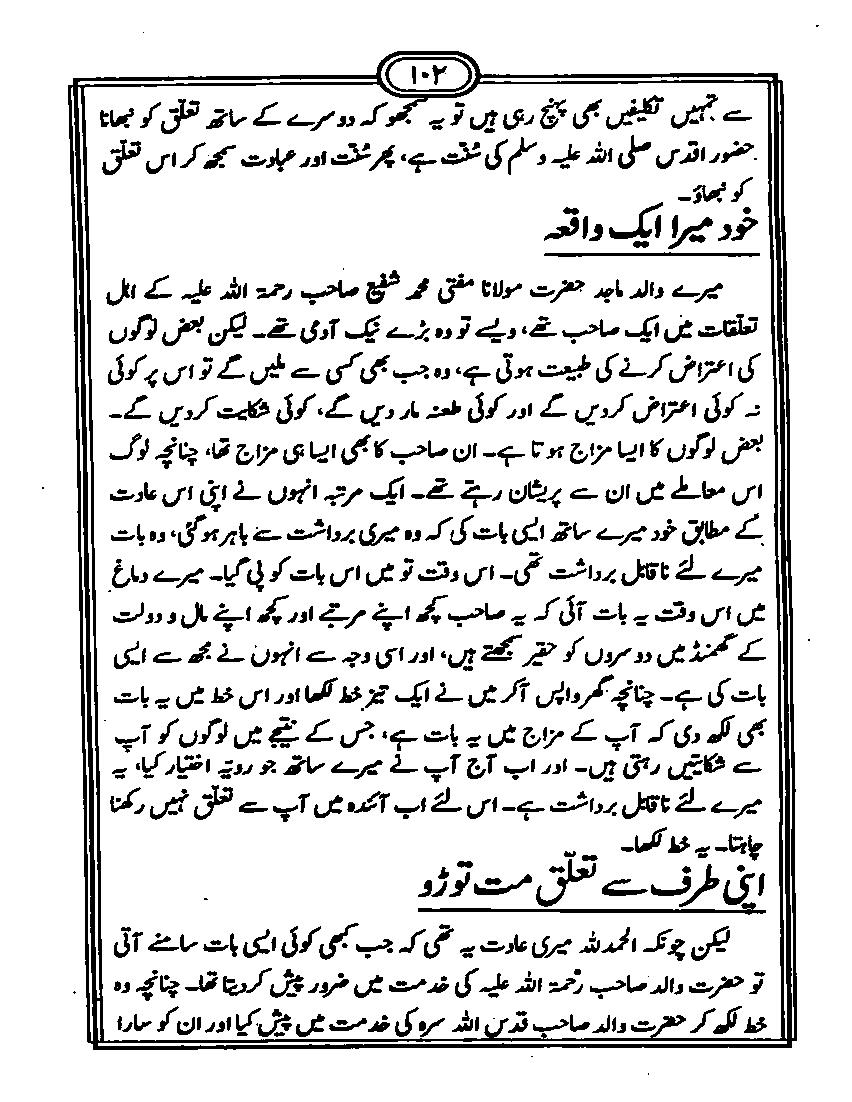 ۱۰۲
سے تمہیں تکلیفیں بھی پہنچ رہی ہیں تو یہ سمجھو کہ دوسرے کے ساتھ تعلّق کو نبھانا
حضور اقدس صلی اللہ علیہ وسلم کی سُنّت ہے، پھر سُنّت اور عبادت سمجھ کر اس تعلّق
کو نبھاؤ۔
خود میرا ایک واقعہ
میرے والد ماجد حضرت مولانا مفتی محمد شفیع صاحب رحمۃ اللہ علیہ کے اہل
تعلّقات میں ایک صاحب تھے، ویسے تو وہ بڑے نیک آدمی تھے۔ لیکن بعض لوگوں
کی اعتراض کرنے کی طبیعت ہوتی ہے، وہ جب بھی کسی سے ملیں گے تو اس پر کوئی
نہ کوئی اعتراض کردیں گے اور کوئی طعنہ مار دیں گے، کوئی شکایت کردیں گے۔
بعض لوگوں کا ایسا مزاج ہوتا ہے۔ ان صاحب کا بھی ایسا ہی مزاج تھا، چنانچہ لوگ
اس معاملے میں ان سے پریشان رہتے تھے۔ ایک مرتبہ انہوں نے اپنی اس عادت
کے مطابق خود میرے ساتھ ایسی بات کی کہ وہ میری برداشت سے باہر ہوگئی، وہ بات
میرے لئے ناقابل برداشت تھی۔ اس وقت تو میں اس بات کو پی گیا۔ میرے دماغ
میں اس وقت یہ بات آئی کہ یہ صاحب کچھ اپنے مرتبے اور کچھ اپنے مال و دولت
کے گھمنڈ میں دوسروں کو حقیر سمجھتے ہیں، اور اسی وجہ سے انہوں نے مجھ سے ایسی
بات کی ہے۔ چنانچہ گھر واپس آکر میں نے ایک تیز خط لکھا اور اس خط میں یہ بات
بھی لکھ دی کہ آپ کے مزاج میں یہ بات ہے، جس کے نتیجے میں لوگوں کو آپ
سے شکایتیں رہتی ہیں۔ اور اب آج آپ نے میرے ساتھ جو رویّہ اختیار کیا، یہ
میرے لئے ناقابل برداشت ہے۔ اس لئے اب آئندہ میں آپ سے تعلّق نہیں رکھنا
چاہتا۔ یہ خط لکھا۔
اپنی طرف سے تعلّق مت توڑو
لیکن چونکہ الحمدللہ میری عادت یہ تھی کہ جب کبھی کوئی ایسی بات سامنے آتی
تو حضرت والد صاحب رحمۃ اللہ علیہ کی خدمت میں ضرور پیش کردیتا تھا۔ چنانچہ وہ
خط لکھ کر حضرت والد صاحب قدس اللہ سرہ کی خدمت میں پیش کیا اور ان کو سارا